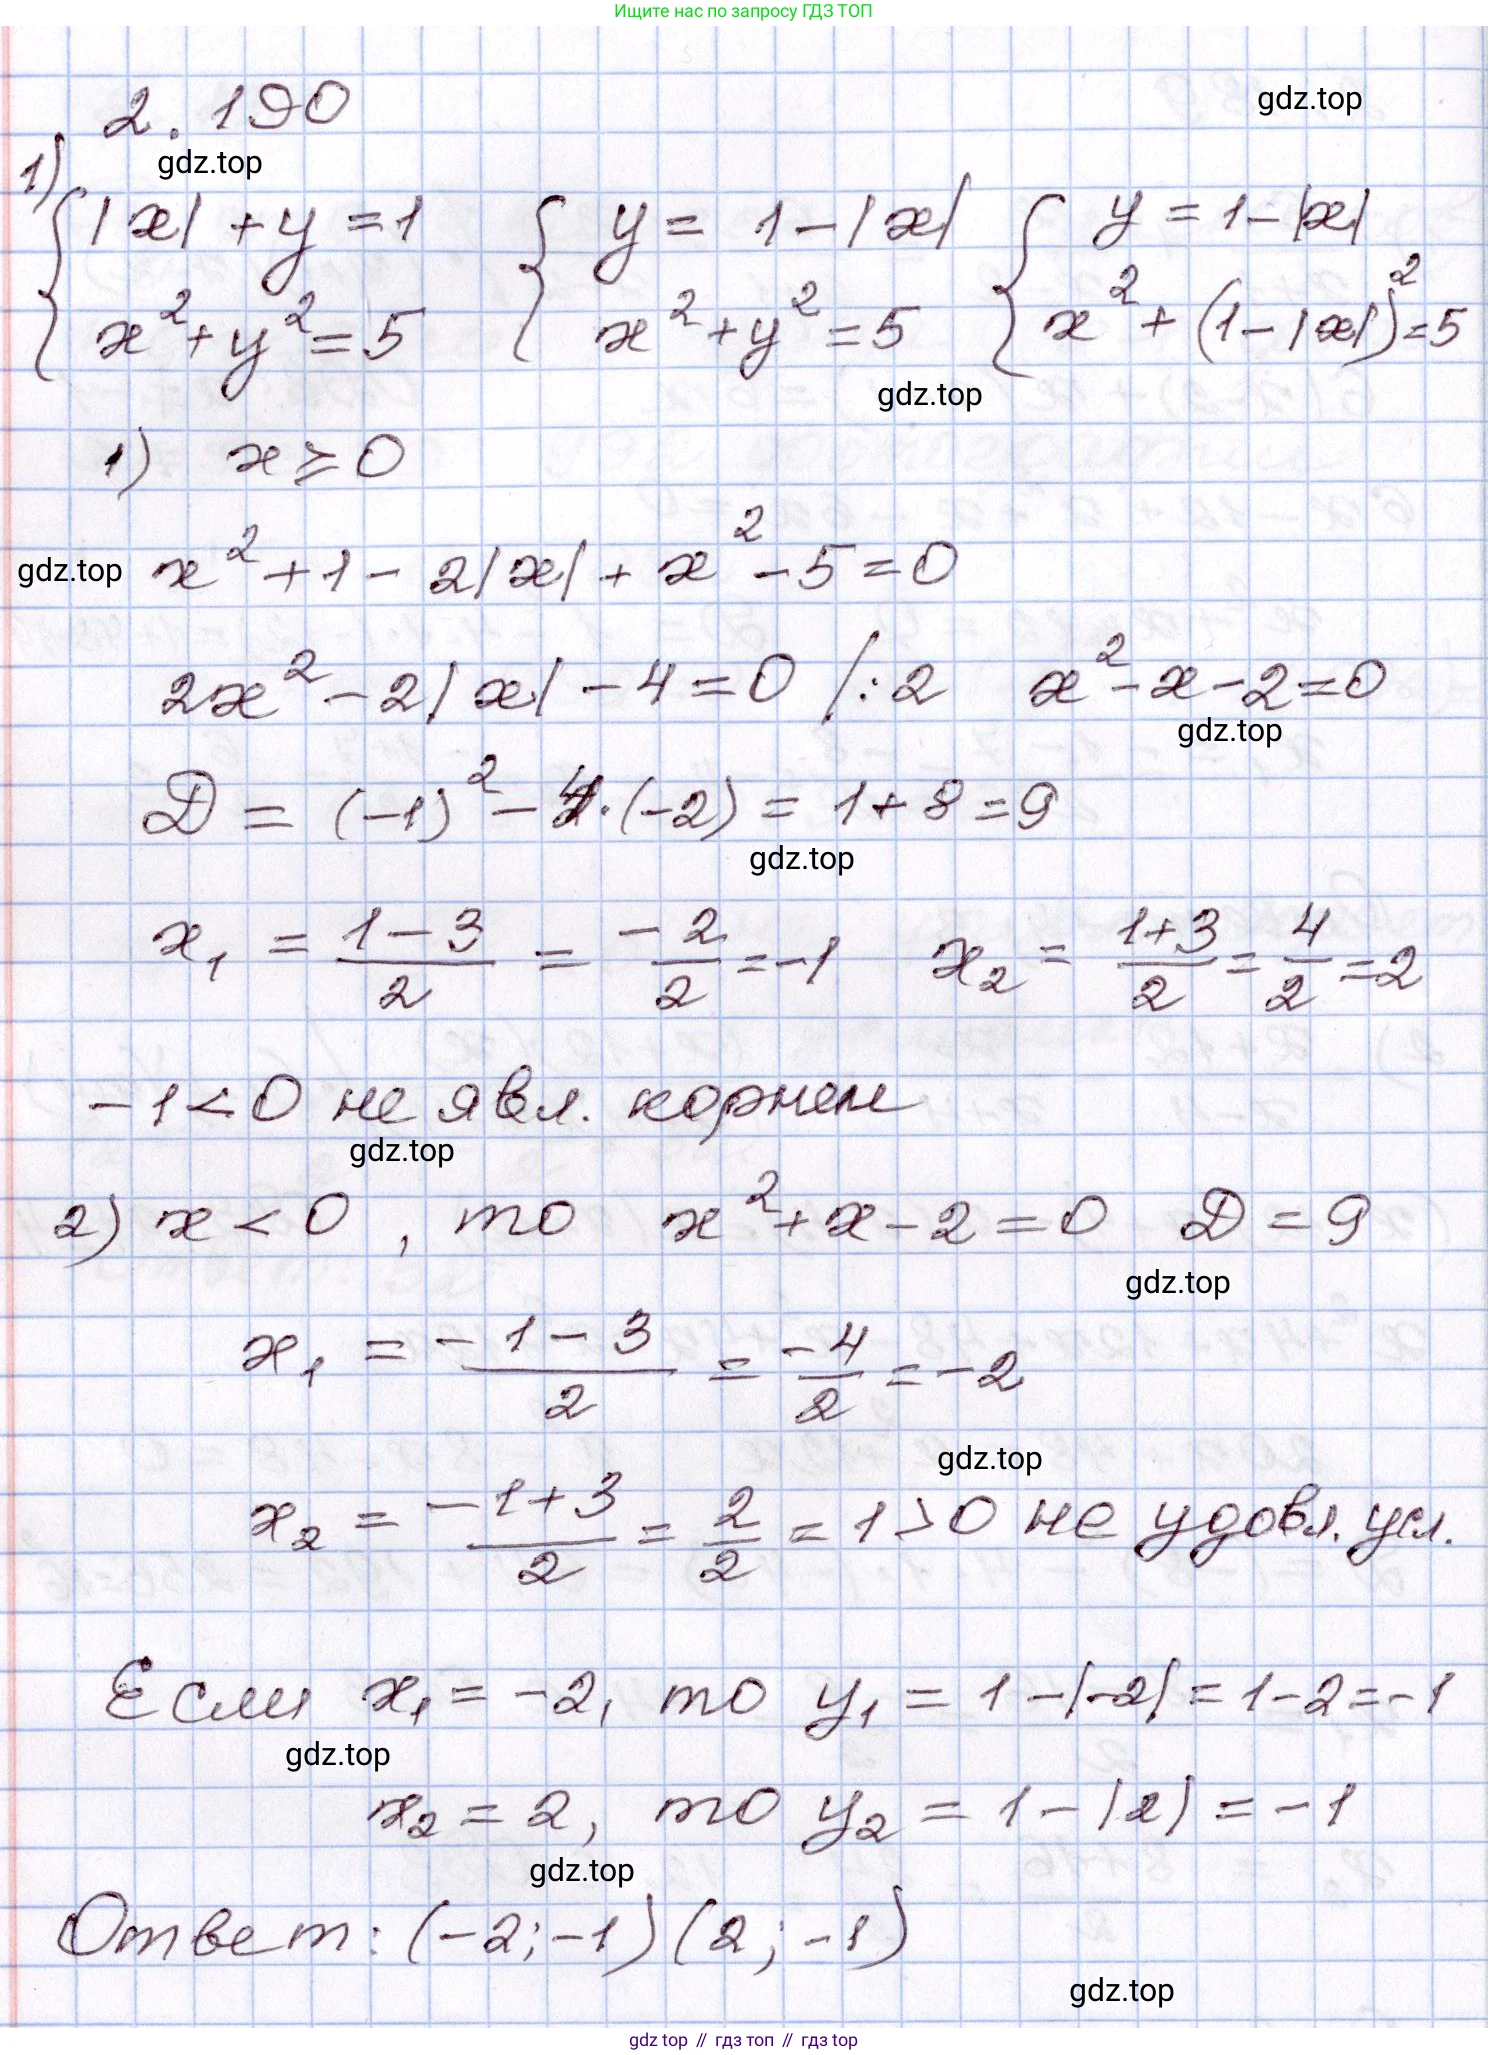 Ищите нас по запросу ГДЗ ТОП
2.190
gdz.top
gdz.top
1) { |x| + y = 1 { y = 1 - |x| { y = 1 - |x|
x² + y² = 5 x² + y² = 5 x² + (1 - |x|)² = 5
gdz.top
1) x ≥ 0
gdz.top x² + 1 - 2|x| + x² - 5 = 0
2x² - 2|x| - 4 = 0 /:2 x² - x - 2 = 0
gdz.top
D = (-1)² - 4·(-2) = 1 + 8 = 9
gdz.top
x₁ = (1 - 3)/2 = -2/2 = -1 x₂ = (1+3)/2 = 4/2 = 2
-1 < 0 не явл. корнем
gdz.top
2) x < 0, то x² + x - 2 = 0 D = 9
gdz.top
x₁ = (-1 - 3)/2 = -4/2 = -2
gdz.top
x₂ = (-1+3)/2 = 2/2 = 1 > 0 не удовл. усл.
Если x₁ = -2, то y₁ = 1 - |-2| = 1 - 2 = -1
gdz.top
x₂ = 2, то y₂ = 1 - |2| = -1
gdz.top
Ответ: (-2; -1) (2; -1)
gdz.top
gdz top // гдз топ // гдз top